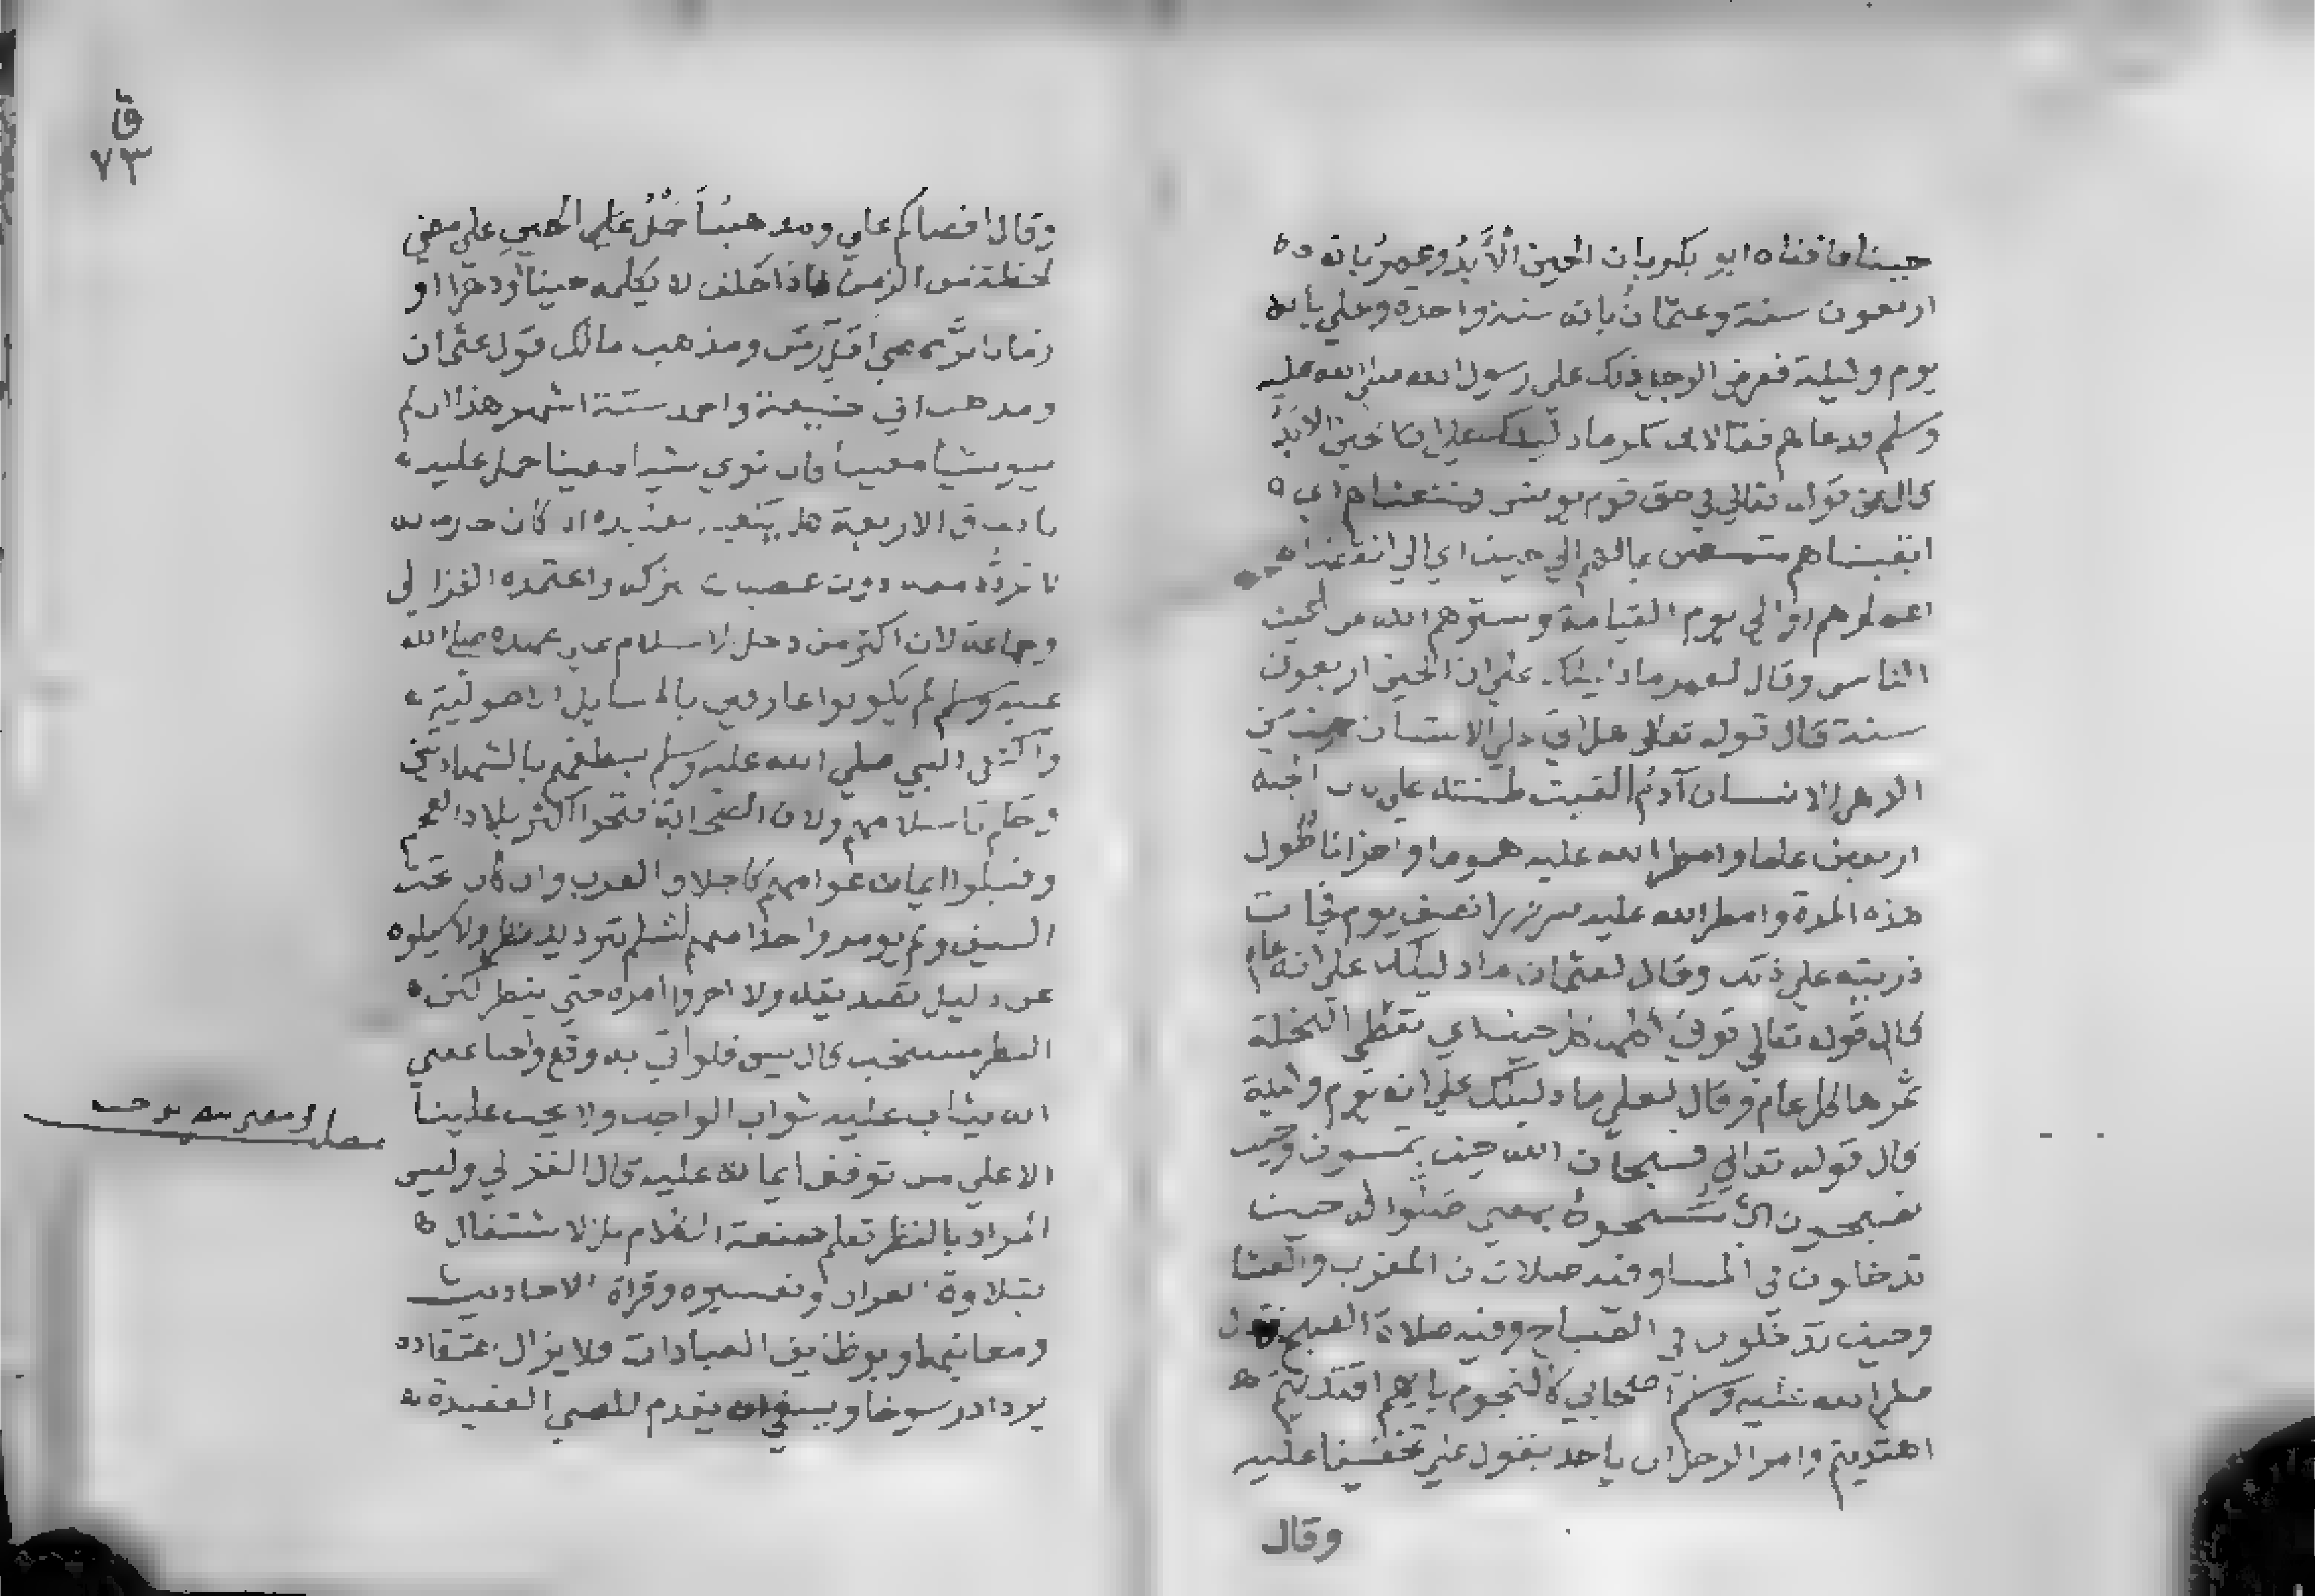 حينا فافتاه ابو بكر بان الحين الأبدُ وعمرُ بانه
اربعون سنة وعثمانُ بانه سنة واحدة وعلي بانه
يوم وليلة فعرض الرجل ذلك على رسول الله صلى الله عليه
وسلم فدعاهم فقال لابى بكر ما دليلك على ان الحين الابدُ
قال قوله تعالي في حق قوم يونس فمتعناهم اي
ابقيناهم بمالهم الي حين اي الي انقضا
اعمارهم او الي يوم القيامة وسترهم الله عن اعين
الناس وقال لعمر ما دليلك على ان الحين اربعون
سنة قال قوله تعالى هل اتى على الانسان حين من
الدهر الانسان آدمُ القيت طينته على باب الجنة
اربعين عاما وامطر الله عليه هموما واحزانا طول
هذه المدة وامطر الله عليه سرورا نصف يوم فجات
ذريته علي ذلك وقال لعثمان ما دليلك على انه عام
قال قوله تعالي توتي اكلها كل حين اي تعطي النخلة
ثمرها كل عام وقال لعلي ما دليلك علي انه يوم وليلة
قال قوله تعالي فسبحان الله حين تمسون وحين
تصبحون اي سبحوهُ بمعني صلّوا له حين
تدخلون في المسا وفيه صلاتان المغرب والعشا
وحين تدخلون في الصباح وفيه صلاة الصبح فقال
صلى الله عليه وسلم اصحابي كالنجوم بايهم اقتديتم
اهتديتم وامر الرجل ان ياخذ بقول علي تخفيفا عليه
وقال
ق
٧٣
وقال اقضاكم علي ومذهبنا حملُ الحين على مضي
لحظة من الزمن فاذا حلف لا يكلمه حينا او دهرا او
زمانا برَّ بمضي اقل زمن ومذهب مالك قول عثمان
ومذهب ابي حنيفة واحمد ستة اشهر هذا ان لم
ينو شيأ معينا فان نوي شيا معينا حمل عليه
باتفاق الاربعة هل
تردُّد معه دون عصيان بتركه واعتمده الغزالي
وجماعة لان اكثر من دخل الاسلام على عهده صلى الله
عليه وسلم لم يكونوا عارفين بالمسايل الاصوليّة
واكتفى النبي صلي الله عليه وسلم بنطقهم بالشهادتين
وحكم باسلامهم ولان الصحابة فتحوا اكثر بلاد العجم
وقبلوا ايمان عوامهم كاجلاف العرب وان كان تحت
السيف ولم يومروا احدا منهم اسلم بترديد نظر ولا سالوه
عن دليل تصديقه ولا اخروا امره حتي ينظر لكن
النظر مستحب قال يس فلو اتي به وقع واجبا بمعني
انه يثاب عليه ثواب الواجب ولا يجب علينا
الا علي من توقف ايمانه عليه قال الغزالي وليس
المراد بالنظر تعلم صنعة الكلام بل الاشتغال
بتلاوة القران وتفسيره وقراة الاحاديث
ومعانيها وبوظائف العبادات ولا يزال اعتقاده
يزداد رسوخا وينبغي ان يقدم للصبي العقيدة